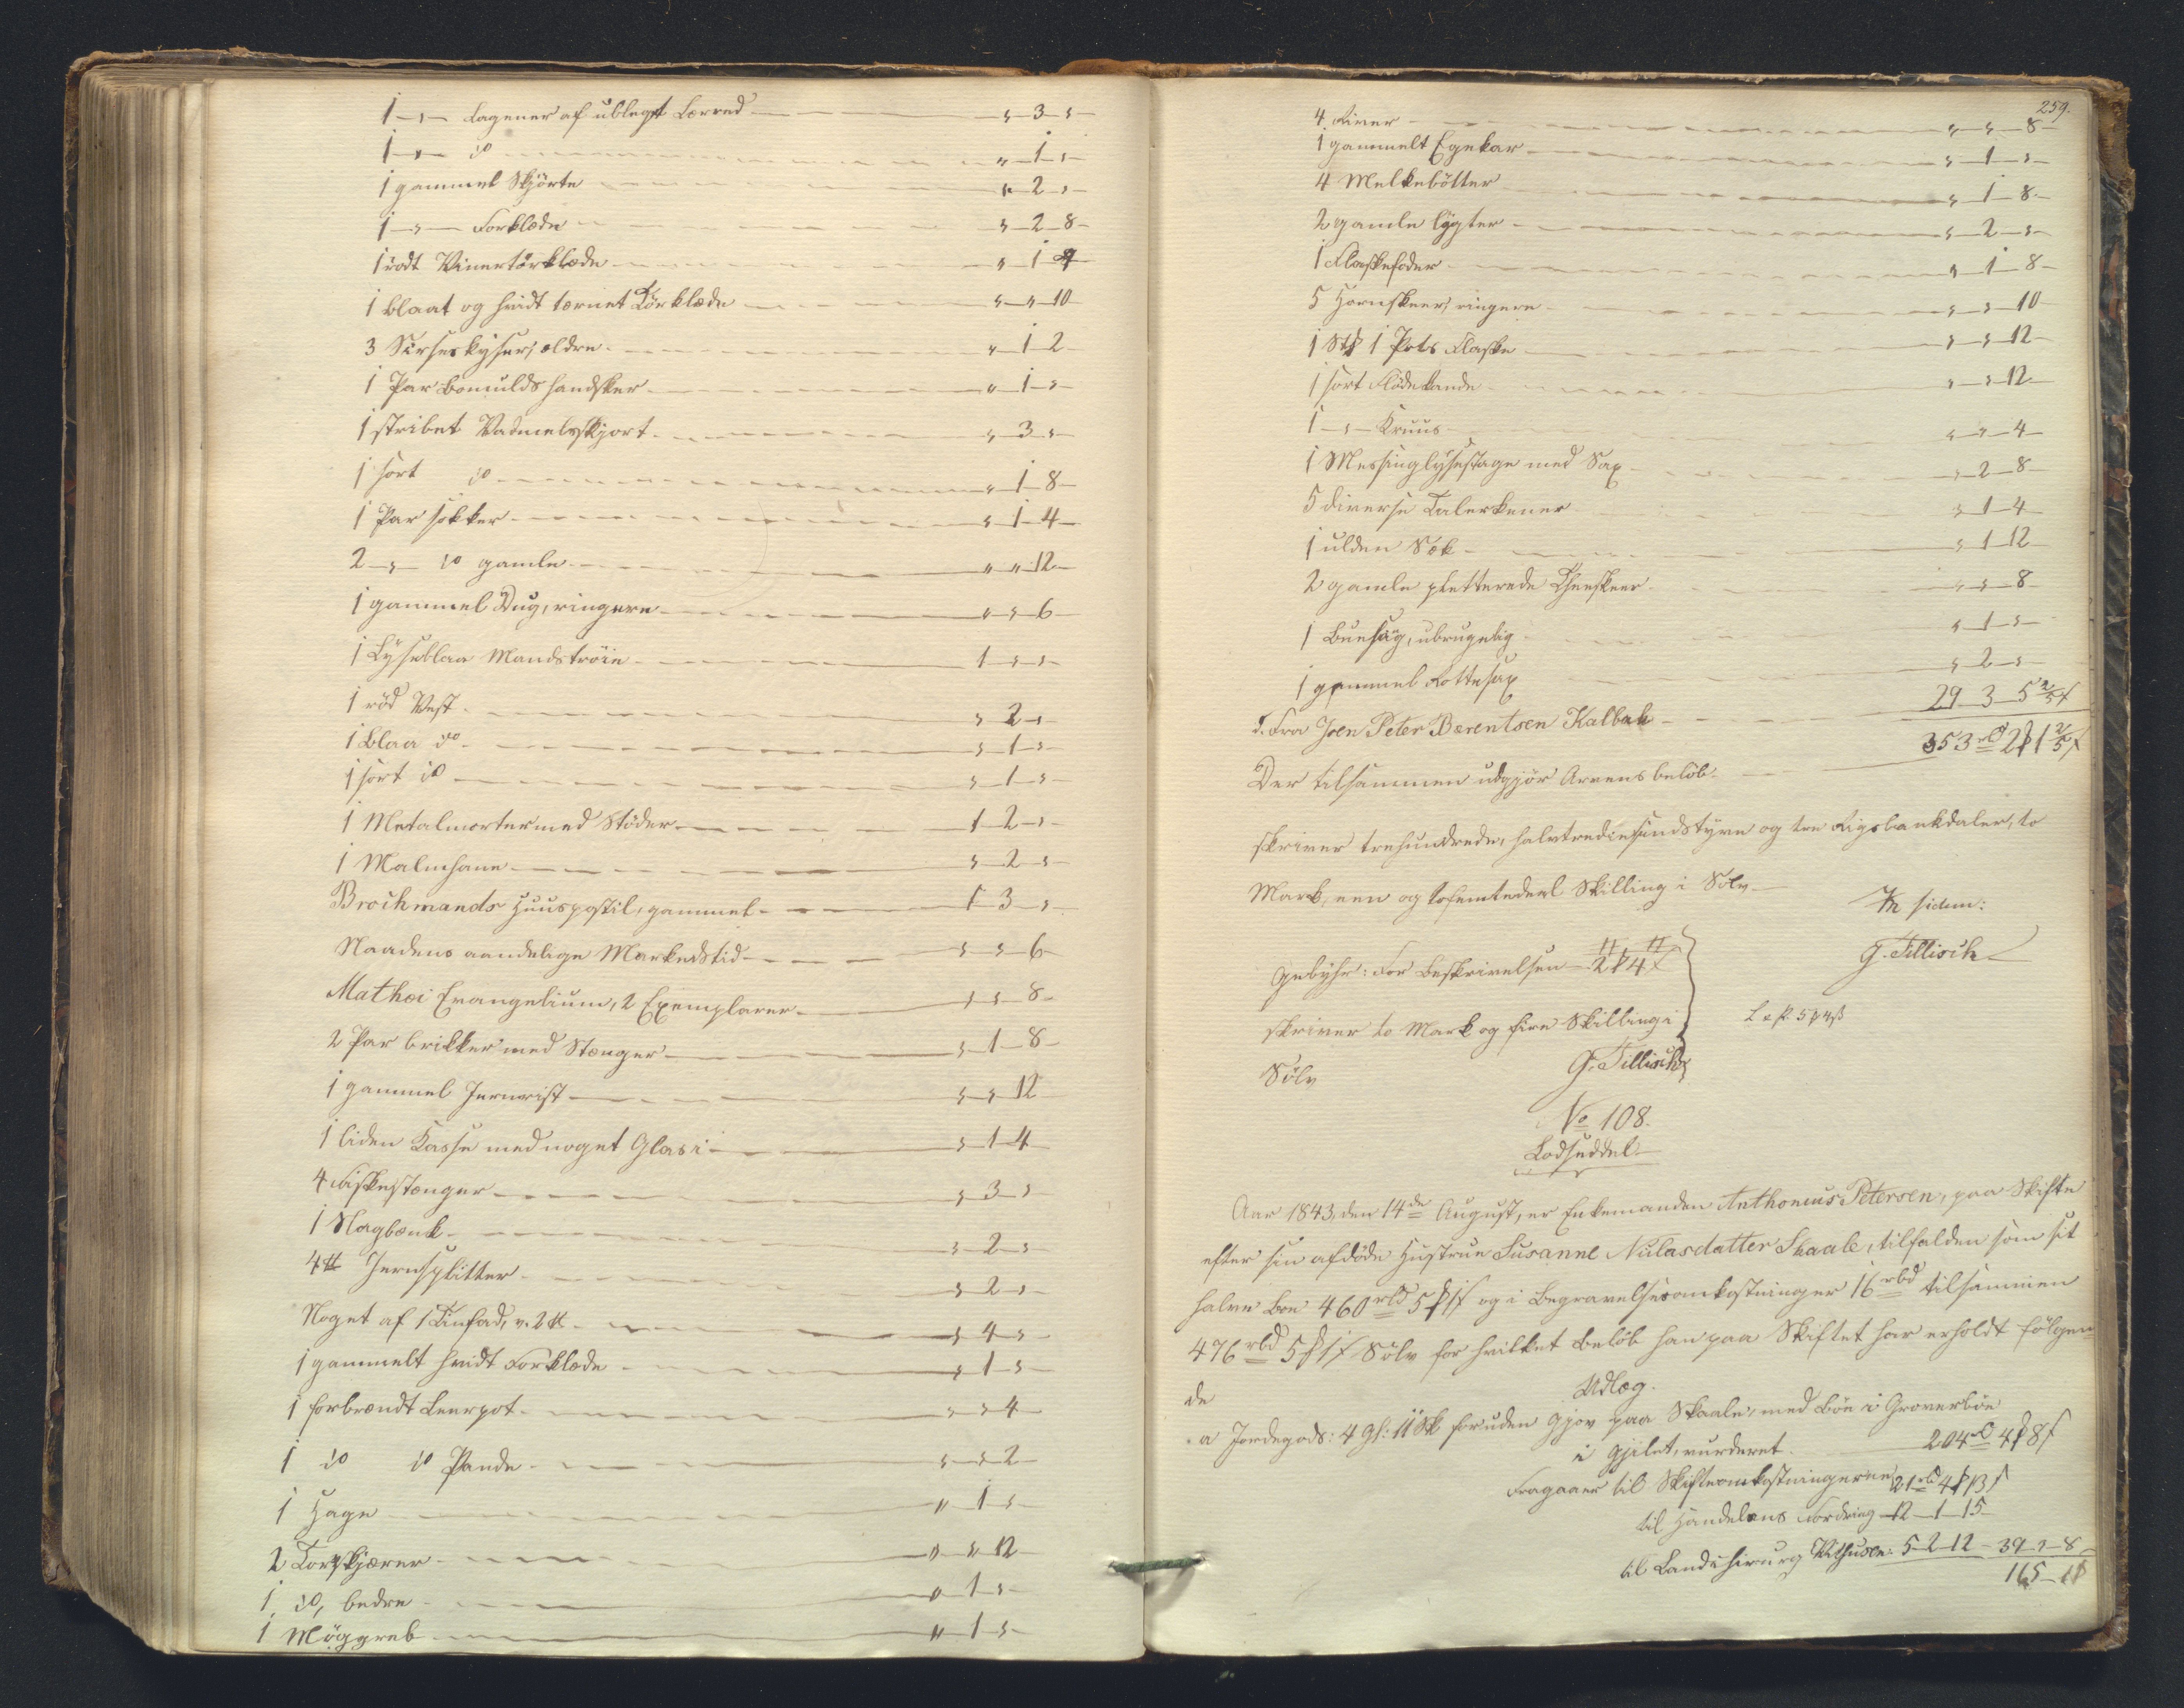 1 -"- Lagener af ubleget Lærred " 3 "
1 -"- do " 1 "
1 gammel Skjörte " 2 "
1 -"- Forklæde " 2 8
1 rödt Vinertörklæde " 1
1 blaat og hvidt ternet Törklæde " " 10
3 Sirseskyser, ældre " 1 2
1 Par Bomulds Handsker " 1 "
1 stribet Vadmelsskjort " 3 "
1 sort do " 1 8
1 Par Sokker " 1 4
2 -"- do gamle " " 12
1 gammel Dug, ringere " " 6
1 Lyseblaa Mandströie 1 " "
1 röd Vest " 2 "
1 blaa do " 1 "
1 sort do " 1 "
1 Metalmorter med Stöder 1 2 "
1 Malmhane " 2 "
Brochmands Huuspostil, gammel 1 3 "
Naadens aandelige Markedstid " " 6
Mathæi Evangelium, 2 Exemplarer " " 8
2 Par brikker med Stænger " 1 8
1 gammel Jernrist " " 12
1 liden Kasse med noget Glas i " 1 4
4 Fiskestænger " 3 "
1 Slagbænk " 2 "
4 ℔ Jernsplitter " 2 "
Noget af 1 Tinfad, v. 2 ℔ " 4 "
1 gammelt hvidt Forklæde " 1 "
1 forbrændt Leerpot " " 4
1 do do Pande " " 2
1 Hage " 1 "
2 Torvskjærer " " 12
1 do, bedre " 1 "
1 Möggreb " 1 "
259.
4 River " " 8
1 gammelt Egekar " 1 "
4 Melkebötter " 1 8
2 gamle lygter " 2 "
1 Flaskefoder " 1 8
5 Hornskeer, ringere " " 10
1 Stk 1 Pots Flaske " " 12
1 sort Flödekande " " 12
1 -"- Kruus " " 4
1 Messinglysestage med Sax " 2 8
5 diverse Talerkener " 1 4
1 ulden Sæk " 1 12
2 gamle pletterede Theeskeer " " 8
1 Buesaug, ubrugelig " 1 "
1 gammel Rottesax " 2 "
d. Fra Joen Peter Bærentsen Kalbak 29 3 5 2/5 ſ
Der tilsammen udgjör Arvens belöb 353 rbd 2 ₻ 1 2/5 ſ
skriver trehundrede, halvtrediesindstyve og tre Rigsbankdaler, to
Mark, een og tofemtedeel Skilling i Sölv
In fidem:
G. Tillisch
Gebyhr: For Beskrivelsen 2 ₻ 4 ſ
skriver to Mark og fire Skilling i
Sölv
G. Tillisch
No 108.
Lodseddel
Aar 1843, den 14de August, er Enkemanden Anthonius Petersen, paa Skifte
efter sin afdöde Hustrue Susanne Nielasdatter Skaale, tilfalden som sit
halve Boe 460 rbd 5 ₻ 1 ſ og i Begravelsesomkostninger 16 rbd tilsammen
476 rbd 5 ₻ 1 ſ Sölv for hvilket Belöb han paa Skiftet har erholdt fölgen
de
Udlæg.
a Jordegods: 4 Gl: 11 Sk foruden Gjov paa Skaale, med Böe i Groverböe
i Gjilet, vurderet 204 rbd 4 ₻ 8 ſ
Fragaaer til Skifteomkostningerne 21 rbd 4 ₻ 13 ſ
til Handelens Fordring 12 1 15
til Landchirurg 5 2 12 39 " 8
165